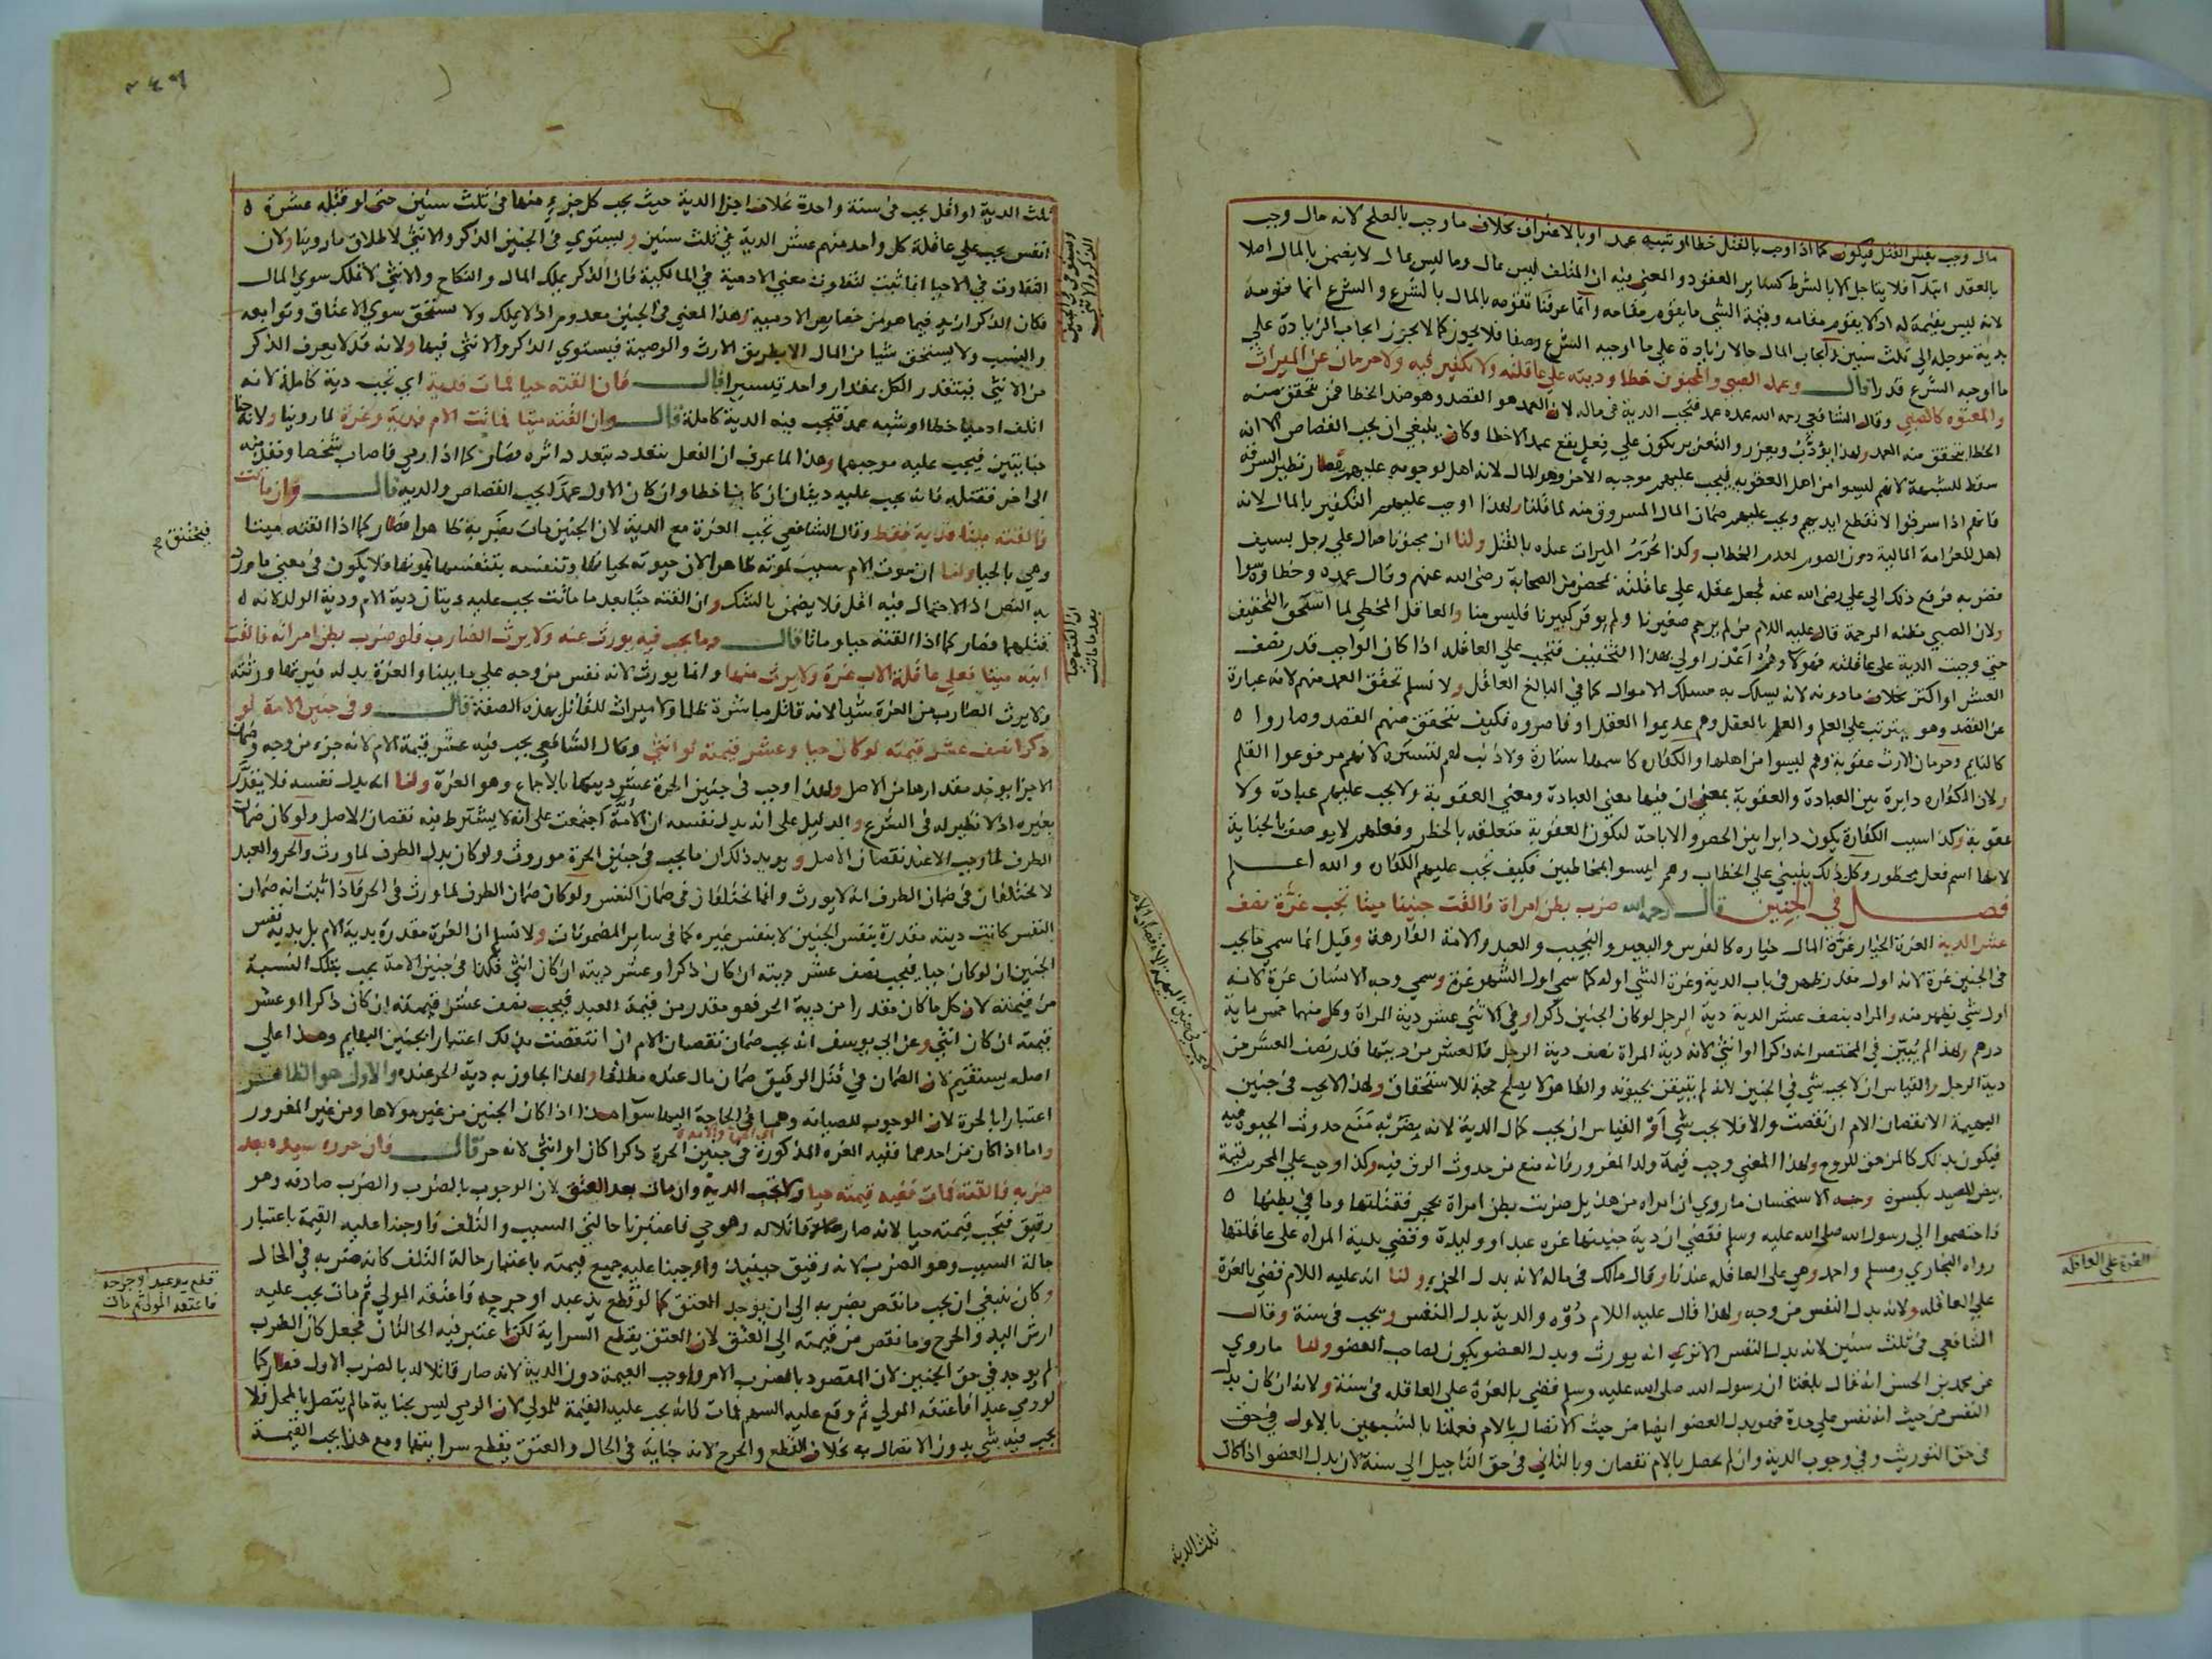 مال وجب بنفس القتل فيكون كما اذا وجب بالقتل خطا او شبه عمد او بالاعتراف بخلاف ما وجب بالصلح لانه مال وجب
بالعقد ابتدآ فلا يتاجل الا بالشرط كسائر العقود والمعنى فيه ان المتلف ليس بمال وما ليس بمال لا يضمن بالمال اصلا
لانه ليس بقيمة له اذ لا يقوم مقامه وقيمة الشى ما يقوم مقامه وانما عرفنا تقومه بالمال بالشرع والشرع انما قومه
بدية موجلة الى ثلث سنين وايجاب المال حالا زيادة على ما اوجبه الشرع وصفا فلا يجوز كما لا يجوز ايجاب الزيادة على
ما اوجبه الشرع قدرا قال وعمد الصبي والمجنون خطا وديته على عاقلته ولا تكفير فيه ولا حرمان عن الميراث
والمعتوه كالصبي وقال الشافعي رحمه الله عمده عمد فتجب الدية في ماله لان العمد هو القصد وهو ضد الخطا فمن تحقق منه
الخطا يتحقق منه العمد ولهذا يؤدب ويعزر والتعزير يكون على فعل يقع عمدا لا خطا وكان ينبغي ان يجب القصاص الا انه
سقط للشبهة لانهم ليسوا من اهل العقوبه فيجب عليهم موجبه الآخر وهو المال لانه اهل لوجوبه عليهم فصار نظير السرقه
فانهم اذا سرقوا لا تقطع ايديهم ويجب عليهم ضمان المال المسروق منه لما قلنا ولهذا اوجب عليهم التكفير بالمال لانه
اهل للغرامة المالية دون الصوم لعدم الخطاب وكذا يحرم الميراث عنده بالقتل ولنا ان مجنونا صال على رجل بسيف
فضربه فرفع ذلك الى علي رضى الله عنه فجعل عقله على عاقلته بمحضر من الصحابة رضى الله عنهم وقال عمده وخطاوه سوا
ولان الصبي مظنه الرحمة قال عليه اللام من لم يرحم صغيرنا ولم يوقر كبيرنا فليس منا والعاقل المخطى لما استحق التخفيف
حتى وجبت الدية على عاقلته فهولاء وهم اعذر اولى بهذا التخفيف فتجب على العاقله اذا كان الواجب قدر نصف
العشر او اكثر بخلاف ما دونه لانه يسلك به مسلك الاموال كما في البالغ العاقل ولا نسلم تحقق العمد منهم لانه عبارة
عن القصد وهو يترتب على العلم والعلم بالعقل وهم عديموا العقل او قاصروه فكيف يتحقق منهم القصد وصاروا
كالنايم وحرمان الارث عقوبة وهم ليسوا من اهلها والكفارة كاسمها ستارة ولا ذنب لهم لتستره لانهم مرفوعوا القلم
ولان الكفاره دايرة بين العبادة والعقوبة بمعنى ان فيها معنى العبادة ومعنى العقوبة ولا يجب عليهم عبادة ولا
عقوبة وكذا سبب الكفارة يكون دايرا بين الحصر والاباحة لتكون العقوبة متعلقه بالحظر وفعلهم لا يوصف بالجناية
لانها اسم فعل محظور وكل ذلك يبتني على الخطاب وهم ليسوا بمخاطبين فكيف تجب عليهم الكفارة والله اعلم
فصل في الجنين قال رحمه الله ضرب بطن امراة فالقت جنينا ميتا تجب غرة نصف
عشر الدية الغرة الخيار غرة المال خياره كالفرس والبعير والنجيب والعبد والامة الفارهة وقيل انما سمى ما يجب
في الجنين غرة لانه اول مقدر ظهر في باب الدية وغرة الشى اوله كما سمى اول الشهر غرة وسمى وجه الانسان غرة لانه
اول شى يظهر منه والمراد بنصف عشر الدية دية الرجل لو كان الجنين ذكرا وفي الانثى عشر دية المراة وكل منهما خمس ماية
درهم ولهذا لم يبين في المختصر انه ذكرا او انثى لانه دية المراة نصف دية الرجل فالعشر من ديتها قدر نصف العشر من
دية الرجل والقياس ان لا يجب شى في الجنين لانه لم يتيقن بحيوته والظاهر لا يصلح حجة للاستحقاق ولهذا لا يجب في جنين
البهيمة الا نقصان الام ان نقصت والا فلا يجب شى او القياس ان يجب كمال الدية لانه بضربه منع حدوث الحيوة فيه
فيكون بذلك كالمزهق للروح ولهذا المعنى وجب قيمة ولد المغرور فانه منع من حدوث الرق فيه وكذا وجب على المحرم قيمة
بيض الصيد بكسره وجه الاستحسان ما روي ان امراه من هذيل ضربت بطن امراة بحجر فقتلتها وما في بطنها
فاختصموا الى رسول الله صلى الله عليه وسلم فقضى ان دية جنينها غره عبد او وليدة وقضى بدية المراه على عاقلتها
رواه البخاري ومسلم واحمد وهي على العاقله عندنا وقال مالك في ماله لانه بدل الجزء ولنا انه عليه اللام قضى بالغرة
على العاقله ولانه بدل النفس من وجه ولهذا قال عليه اللام دوه والدية بدل النفس وتجب في سنة وقال
الشافعي في ثلث سنين لانه بدل النفس الا ترى انه يورث وبدل العضو يكون لصاحب العضو ولنا ما روي
عن محمد بن الحسن انه قال بلغنا ان رسول الله صلى الله عليه وسلم قضى بالغرة على العاقله في سنة ولانه ان كان بدل
النفس من حيث انه نفس على حدة فهو بدل العضو ايضا من حيث الاتصال بالام فعملنا بالشبهين بالاول في حق
في حق التوريث وفي وجوب الدية وان لم يحصل بالام نقصان وبالثاني في حق التاجيل الى سنة لان بدل العضو اذا كان
الغرة على العاقله
ثلث الدية
٢٤٦
ثلث الدية او اقل يجب في سنة واحدة بخلاف اجزا الدية حيث يجب كل جزء منها في ثلث سنين حتى لو قتله عشرة
انفس يجب على عاقلة كل واحد منهم عشر الدية في ثلث سنين ويستوي في الجنين الذكر والانثى لاطلاق ما روينا ولان
التفاوت في الاحيا انما ثبت لتفاوت معنى الادمية في المالكية فان الذكر يملك المال والنكاح والانثى لا تملك سوى المال
فكان الذكر ازيد فيما هو من خصايص الادمية وهذا المعنى في الجنين معدوم اذ لا يملك ولا يستحق سوى الاعتاق وتوابعه
والنسب ولا يستحق شيا من المال الا بطريق الارث والوصية فيستوي الذكر والانثى فيها ولانه قد لا يعرف الذكر
من الانثى فيتقدر الكل بمقدار واحد تيسيرا قال فان القته حيا فمات فدية اي تجب دية كاملة لانه
اتلف ادميا خطا او شبه عمد فتجب فيه الدية كاملة قال وان القته ميتا فماتت الام فدية وغرة لما روينا ولانه جنا
جنايتين فيجب عليه موجبهما وهذا لما عرف ان الفعل يتعدد بتعدد اثره فصار كما اذا رمى فاصاب شخصا ونفذ منه
الى اخر فقتله فانه يجب عليه ديتان ان كانا خطا وان كان الاول عمدا يجب القصاص والدية قال وان ماتت
فالقته ميتا فدية فقط وقال الشافعي تجب الغرة مع الدية لان الجنين مات بضربه ظاهرا فصار كما اذا القته ميتا
وهي بالحيا ولنا ان موت الام سبب لموته ظاهرا لان حيوته بحياتها وتنفسه بتنفسها فيختنق بموتها فلا يكون في معنى ما ورد
به النص اذ الاحتمال فيه اقل فلا يضمن بالشك وان القته حيا بعد ما ماتت يجب عليه ديتان دية الام ودية الولد لانه
قتلهما فصار كما اذا القته حيا وماتا قال وما يجب فيه يورث عنه ولا يرث الضارب فلو ضرب بطن امراته فالقت
ابنه ميتا فعلى عاقلة الاب غرة ولا يرث منها وانما يورث لانه نفس من وجه على ما بينا والغرة بدله فيرثها ورثته
ولا يرث الضارب من الغرة شيا لانه قاتل مباشرة ظلما ولا ميراث للقاتل بهذه الصفة قال وفي جنين الامة لو
ذكرا نصف عشر قيمته لو كان حيا وعشر قيمته لو انثى وقال الشافعي يجب فيه عشر قيمة الام لانه جزء من وجه وضمان
الاجزا يوخذ مقدارها من الاصل ولهذا وجب في جنين الحرة عشر ديتها بالاجماع وهو الغرة ولنا انه بدل نفسه فلا يقدر
بغيره اذ لا نظير له في الشرع والدليل على انه بدل نفسه ان الامة اجتمعت على انه لا يشترط فيه نقصان الاصل ولو كان ضمان
الطرف لما وجب الا عند نقصان الاصل ويويد ذلك ان ما يجب في جنين الحرة موروث ولو كان بدل الطرف لما ورث والحر والعبد
لا يختلفان في ضمان الطرف انه لا يورث وانما يختلفان في ضمان النفس ولو كان ضمان الطرف لما ورث في الحر فاذا ثبت انه ضمان
النفس كانت ديته مقدرة بنفس الجنين لا بنفس غيره كما في ساير المضمونات ولا نسلم ان الغرة مقدرة بدية الام بل بدية نفس
الجنين ان لو كان حيا فيجب نصف عشر ديته ان كان ذكرا وعشر ديته ان كان انثى فكذا في جنين الامة يجب بتلك النسبة
من قيمته لان كل ما كان مقدرا من دية الحر فهو مقدر من قيمة العبد فيجب نصف عشر قيمته ان كان ذكرا او عشر
قيمته ان كان انثى وعن ابي يوسف انه يجب ضمان نقصان الام ان انتقصت بذلك اعتبارا بجنين البهايم وهذا على
اصله يستقيم لان الضمان في قتل الرقيق ضمان مال عنده مطلقا ولهذا يجاوز به دية الحر عنده والاول هو الظاهر
اعتبارا بالحرة لان الوجوب للصيانه وهما في الحاجة اليها سوآ هذا اذا كان الجنين من غير مولاها ومن غير المغرور
واما اذا كان من احدهما ففيه الغره المذكورة في جنين الحرة ذكرا كان او انثى لانه حر قال فان حرره سيده بعد
ضربه فالقته فمات ففيه قيمته حيا ولا تجب الدية وان مات بعد العتق لان الوجوب بالضرب والضرب صادفه وهو
رقيق فتجب قيمته حيا لانه صار قاتلا له وهو حي فاعتبرنا حالتي السبب والتلف فاوجبنا عليه القيمة باعتبار
حالة السبب وهو الضرب لانه رقيق حينيذ واوجبنا عليه جميع قيمته باعتبار حالة التلف كانه ضربه في الحال
وكان ينبغي ان يجب ما نقص بضربه الى ان يوجد العتق كما لو قطع يد عبد او جرحه فاعتقه المولى ثم مات يجب عليه
ارش اليد والجرح وما نقص من قيمته الى العتق لان العتق يقطع السراية لكن اعتبر فيه الحالتان فجعل كان الضرب
لم يوجد في حق الجنين لان المقصود بالضرب الام واوجب القيمة دون الدية لانه صار قاتلا له بالضرب الاول فصار كما
لو رمى عبدا فاعتقه المولى ثم وقع عليه السهم فمات فانه يجب عليه القيمة للمولى لان الرمي ليس بجناية ما لم يتصل بالمحل فلا
يجب فيه شى بدون الاتصال به بخلاف القطع والجرح لانه جناية في الحال والعتق يقطع سرايتها ومع هذا يجب القيمة
ويستوي في الجنين الذكر والانثى
ان القته حيا بعد ما ماتت
فيختنق صح
قطع يد عبد او جرحه فاعتقه المولى ثم مات